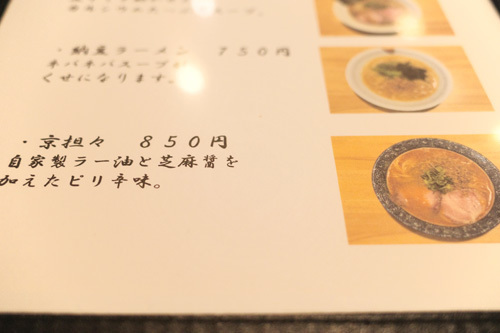 ・納豆ラーメン　７５０円
ネバネバスープが
くせになります。
・京担々　８５０円
自家製ラー油と芝麻醤を
加えたピリ辛味。